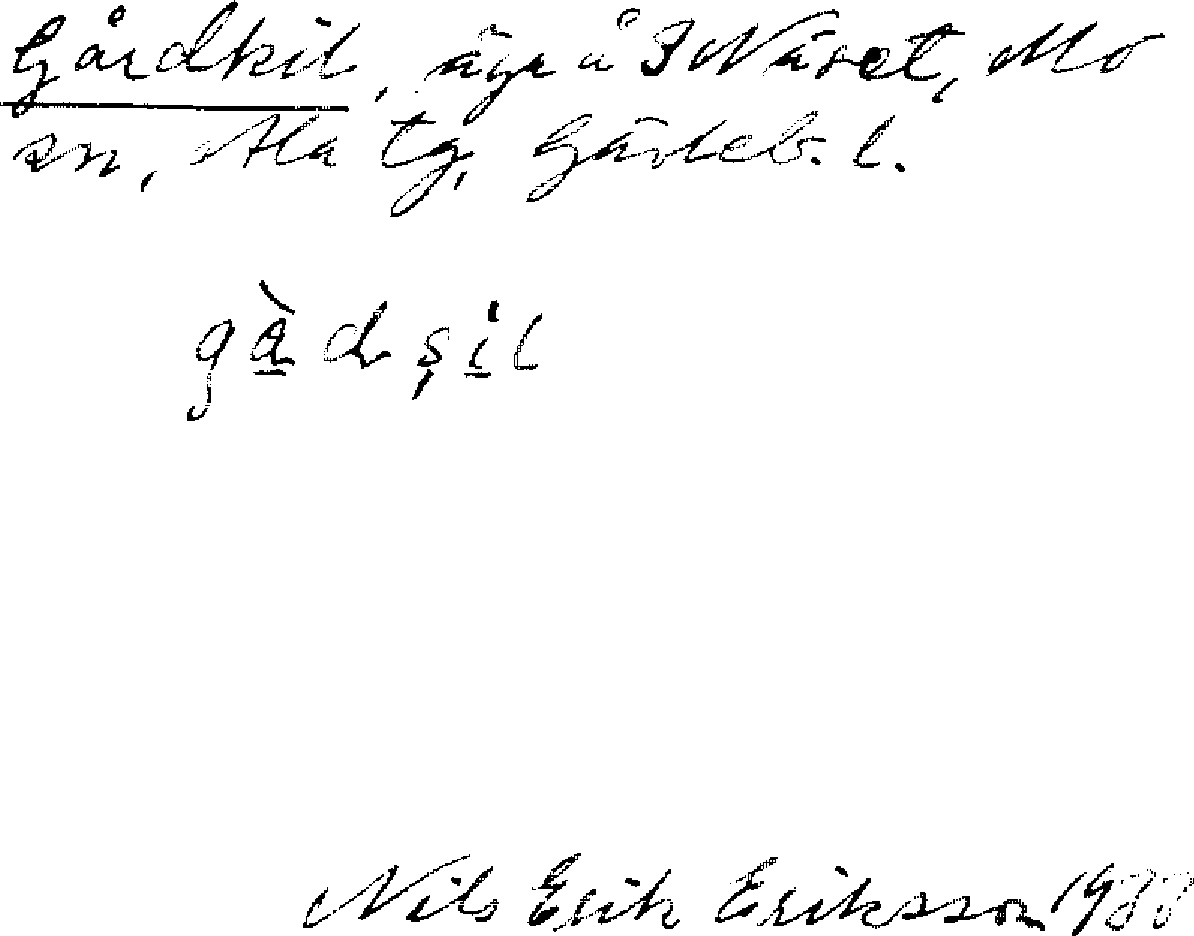 Gårdkil, ägr å 3 Näset, Mo
sn, Ala tg, Gävleb. l.
gàdşil
Nils Erik Eriksson 1933